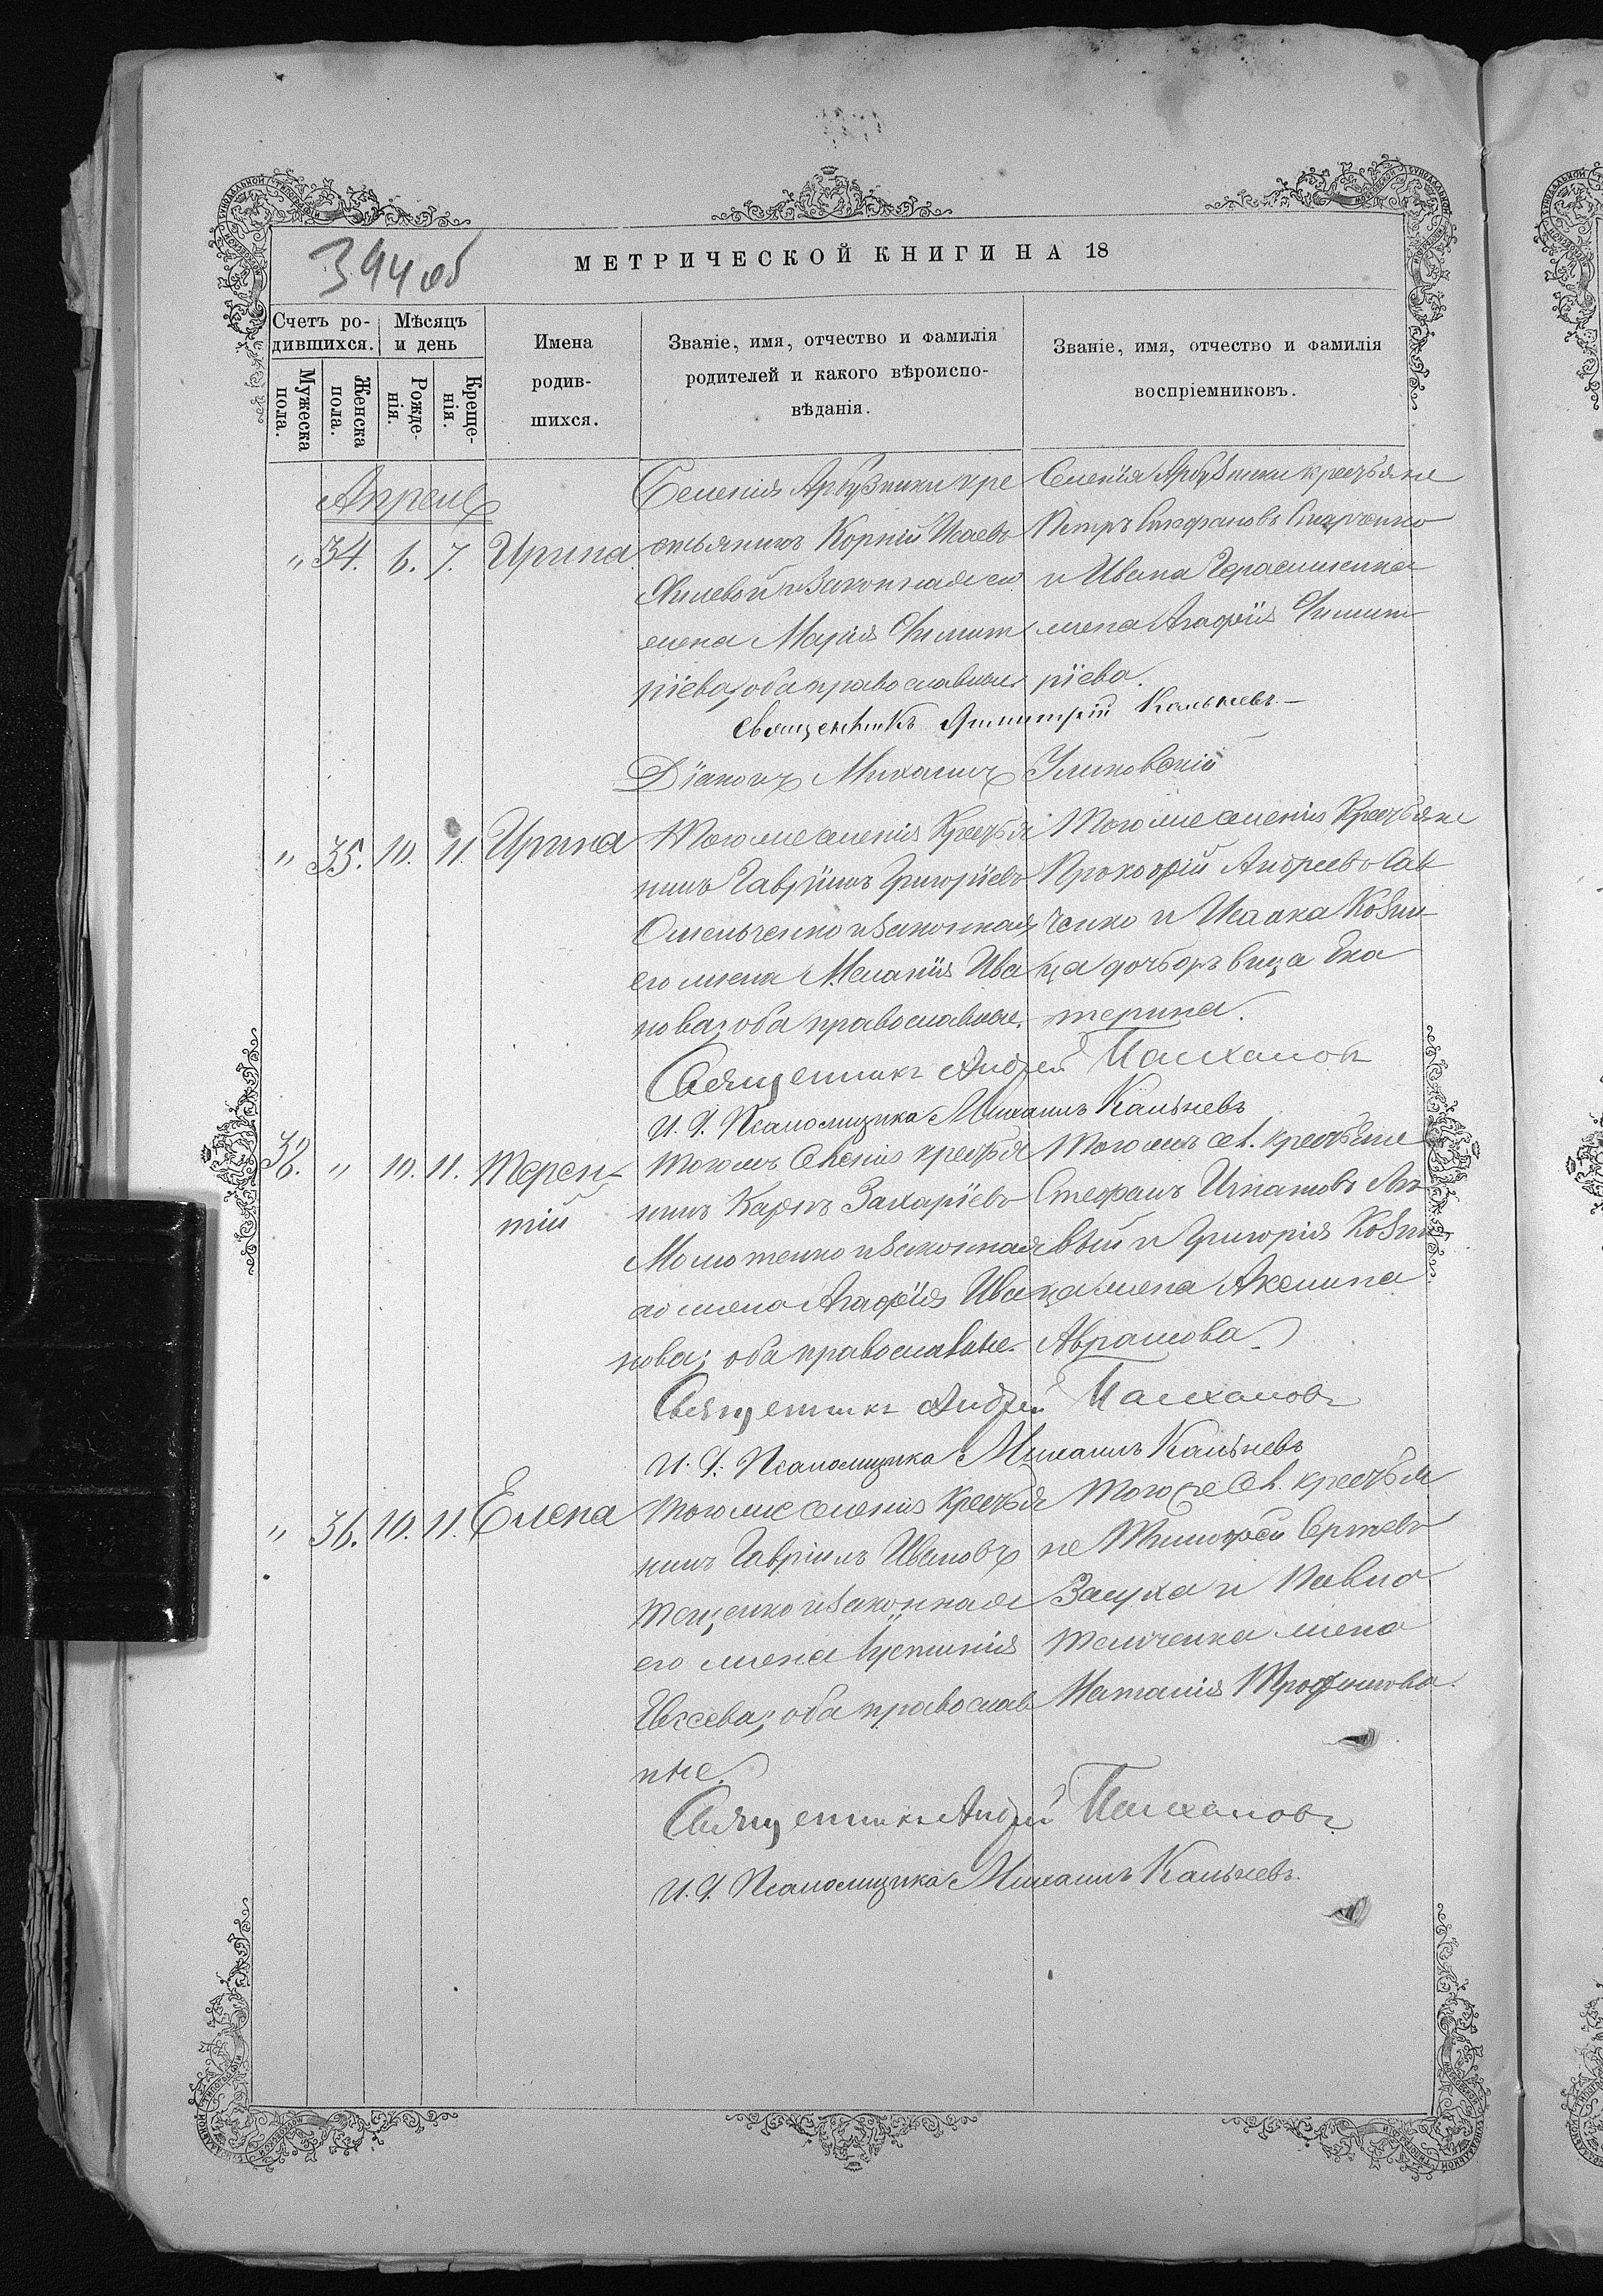 394 об
МЕТРИЧЕСКОЙ КНИГИ НА 18
Счетъ ро-
дившихся.
Мужеска
пола.
Женска
пола.
Мѣсяцъ
и день
Рожде-
нія.
Креще-
нія.
Имена
родив-
шихся.
Званіе, имя, отчество и фамилія
родителей и какого вѣроиспо-
вѣданія.
Званіе, имя, отчество и фамилія
воспріемниковъ.
Апрель
" 34. 6. 7. Ирина
Селенія Арбузинки кре
стьянинъ Корній Исаевъ
и законная его
жена Марія Димит
ріева, оба православные
Селенія Арбузинки крестьяне
Петръ Стефановъ
и Ивана Герасименка
жена Агафія Димит
ріева.
Священникъ Димитрій Кальневъ.
Діаконъ Михаилъ
" 35. 10. 11. Ирина
Того же селенія Крестья
нинъ Гавріилъ Григоріевъ
Омельченко и законная
его жена Меланія Ива
нова; оба православные.
Того же селенія Крестьяне
Прокофій Андреевъ Сав
ченко и Исаака Козин
ца дочь дѣвица Ека
терина.
Священникъ Андрей
И. д. Псаломщика Михаилъ Кальневъ
38. " 10. 11. Терен-
тій
Того жъ Селенія крестья
нинъ Карпъ Захаріевъ
Молотенко и законная
его жена Агафія Ива
нова; оба православные.
Того жъ сел. крестьяне
Стефанъ Игнатовъ
и Григорія Козин
ца жена Акилина
Аврамова
Священникъ Андрей
И. д. Псаломщика Михаилъ Кальневъ
" 36. 10. 11. Елена
Того же селенія Крестья
нинъ Гавріилъ Ивановъ
Тещенко и законная
его жена Іустинія
Евсеева; оба православ
ные.
Того же сел. крестья
не Тимофей Сергеевъ
Защуха и Павла
Темченка жена
Наталія Трофимова.
Священникъ Андрей
И. д. Псаломщика Михаилъ Кальневъ.